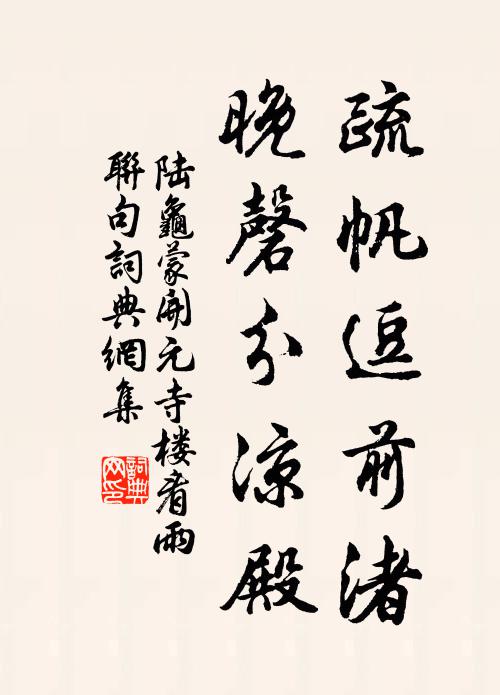 疏帆逗前渚
晚磬分涼殿
陆龜蒙開元寺楼看雨
聯句詞典網集
詞典网印